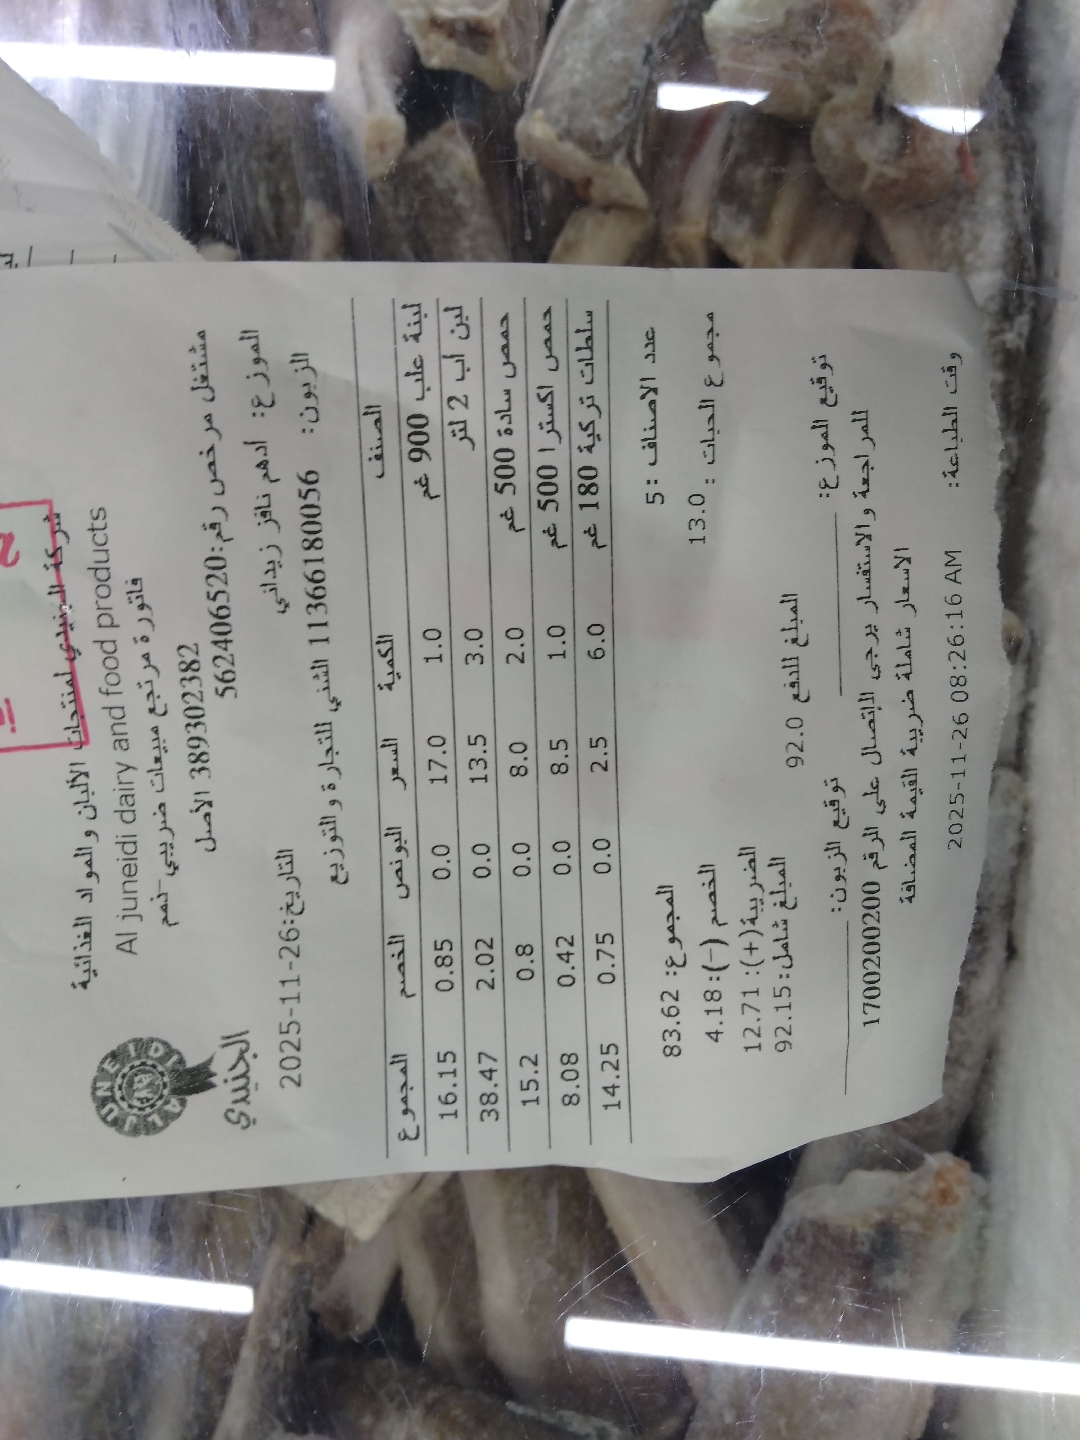 شركة الجنيدي لمنتجات الألبان و المواد الغذائية
Al juneidi dairy and food products
فاتورة مرتجع مبيعات ضريبي-نهم
389302382 الأصل
مشتغل مرخص رقم:562406520
الجنيدي
الموزع: ادهم نافز زيداني
التاريخ:2025-11-26
الزبون: 11366180056 الشني للتجارة و التوزيع
الصنف الكمية السعر البونص الخصم المجموع
لبنة علب 900 غم 1.0 17.0 0.0 0.85 16.15
لبن اب 2 لتر 3.0 13.5 0.0 2.02 38.47
حمص سادة 500 غم 2.0 8.0 0.0 0.8 15.2
حمص اكسترا 500 غم 1.0 8.5 0.0 0.42 8.08
سلطات تركية 180 غم 6.0 2.5 0.0 0.75 14.25
عدد الاصناف :5
المجموع: 83.62
مجموع الحبات : 13.0
الخصم (-):4.18
الضريبة(+):12.71
المبلغ شامل:92.15
المبلغ للدفع 92.0
توقيع الموزع: توقيع الزبون:
للمراجعة والاستفسار يرجى الإتصال على الرقم 1700200200
الاسعار شاملة ضريبة القيمة المضافة
وقت الطباعة: 2025-11-26 08:26:16 AM